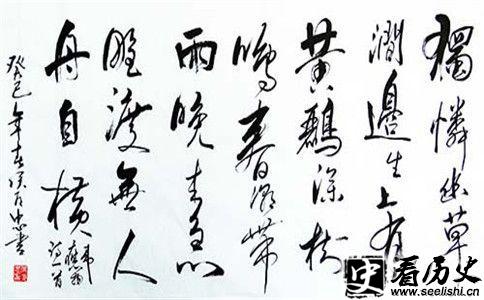 獨憐幽草
澗邊生上有
黄鸝深樹
鳴春潮帶
雨晚来急
野渡無人
舟自横
韋應物
癸巳年春
史看历史
www.seelishi.cn